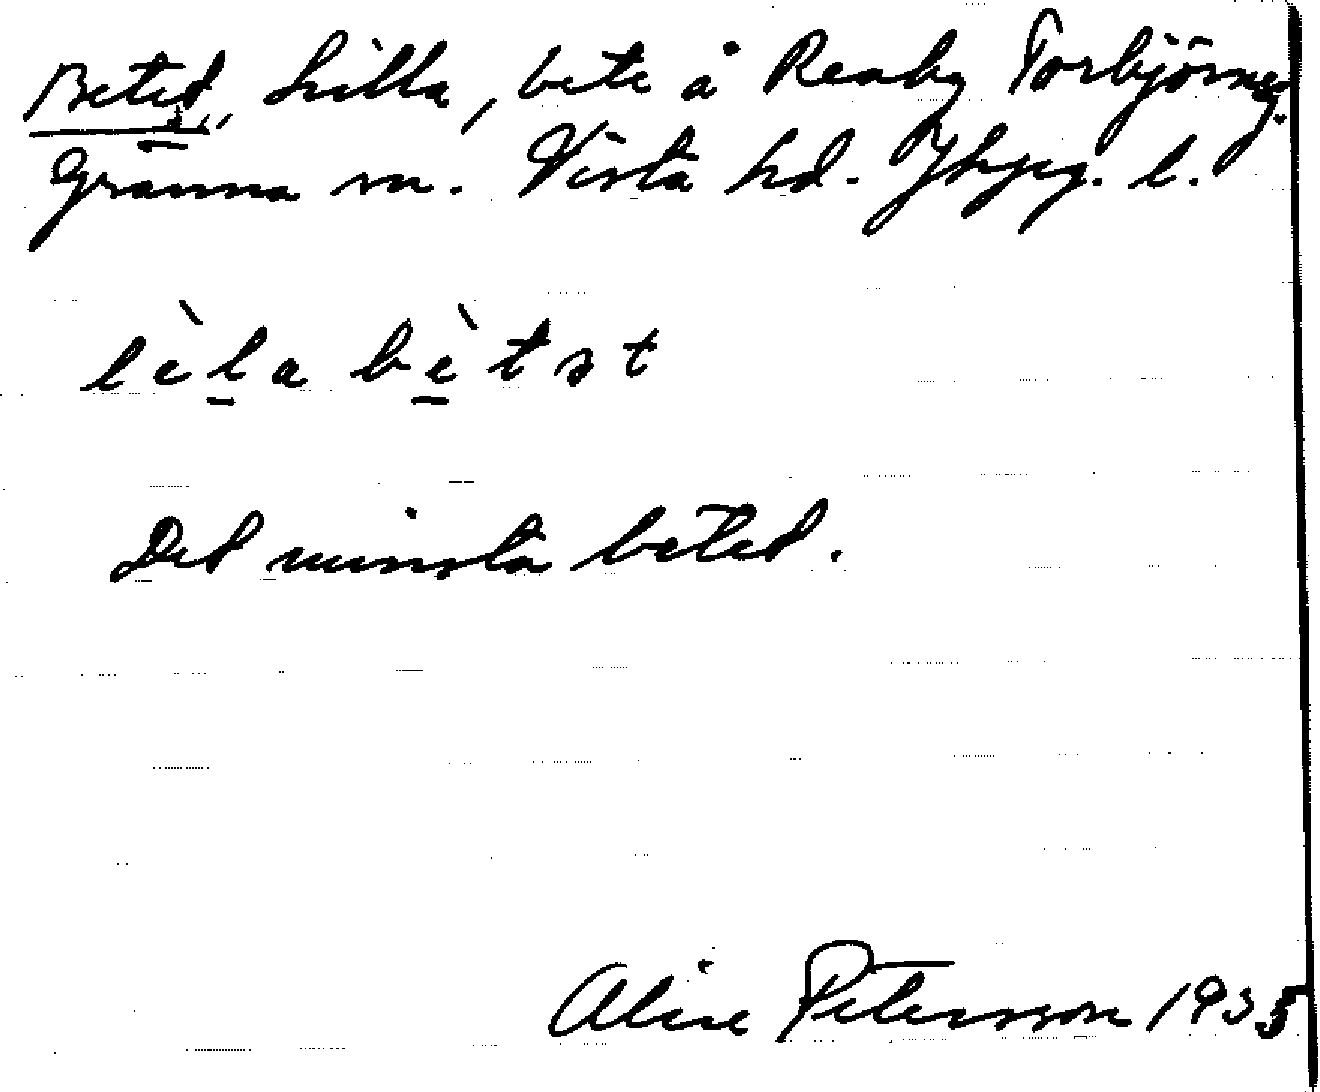 Beted, Lilla, bete å Reaby Torbjörnsg.
Gränna sn. Vista hd. Jkpg. l.
lèla bètst
Det minsta betet.
Alice Petersson 1935